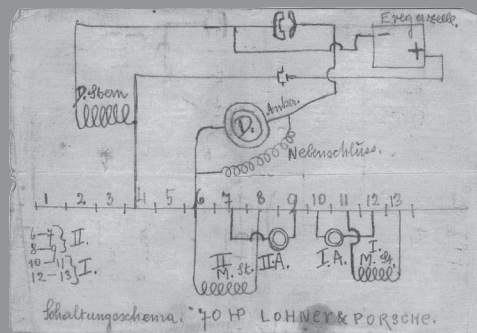 Eregerzelle.
−
+
D. Stern
Anker.
D.
Nebenschluss.
1 2 3 4 5 6 7 8 9 10 11 12 13
6–7 } II.
8–9
10–11 } I.
12–13
II II.A. I.A. I.
M. St. M. St.
Schaltungsschema. 70 HP LOHNER & PORSCHE.